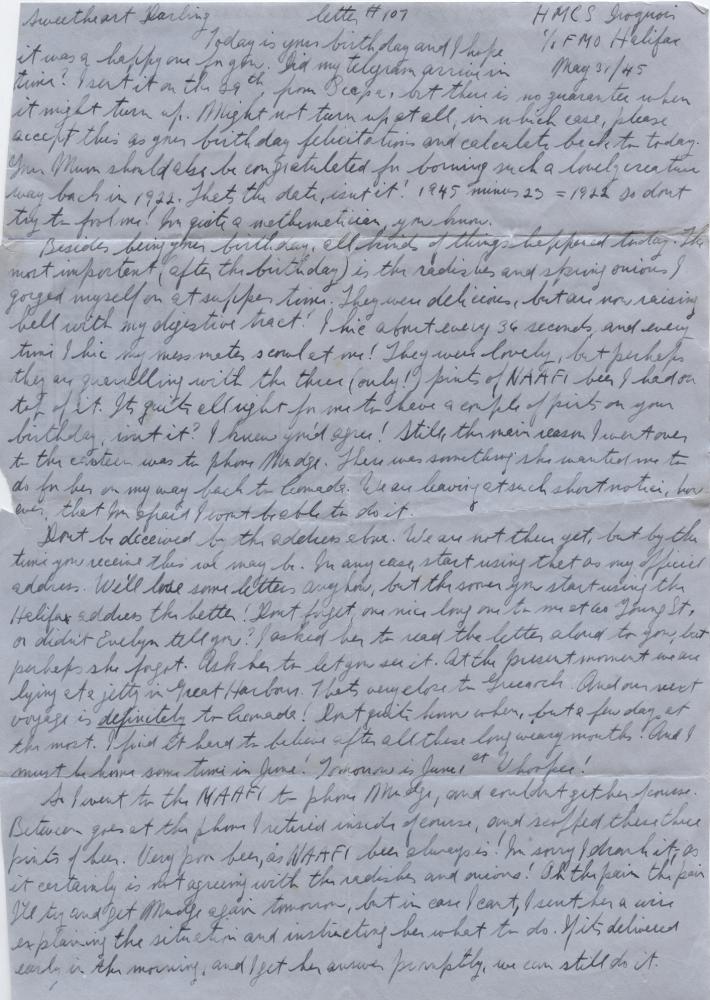 Sweetheart Darling letter #107 HMCS Iroquois
Today is your birthday and I hope c/o FMO Halifax
it was a happy one for you. Did my telegram arrive in May 31/45
time? I sent it on the 29th, from Scapa, but there is no guarantee when
it might turn up. Might not turn up at all, in which case, please
accept this as your birthday felicitations and calculate back to today.
Your Mum should also be congratulated for borning such a lovely creature
way back in 1922. That's the date, isn't it! 1945 minus 23 = 1922 so don't
try to fool me! I'm quite a mathematician, you know.
Besides being your birthday, all kinds of things happened today. The
most important (after the birthday) is the radishes and spring onions I
gorged myself on at supper time. They were delicious, but are now raising
hell with my digestive tract! I hic about every 36 seconds, and every
time I hic my mess mates scowl at me! They were lovely, but perhaps
they are quarrelling with the three (only!) pints of NAAFI beer I had on
top of it. It's quite all right for me to have a couple of pints on your
birthday, isn't it? I knew you'd agree! Still the main reason I went over
to the canteen was to phone Mudge. There was something she wanted me to
do for her on my way back to Canada. We are leaving at such short notice, how
ever, that I'm afraid I won't be able to do it.
Don't be deceived by the address above. We are not there yet, but by the
time you receive this we may be. In any case, start using that as my official
address. We'll lose some letters anyhow, but the sooner you start using the
Halifax address the better! Don't forget, one nice long one to me at Young St.,
or didn't Evelyn tell you? I asked her to read the letter aloud to you, but
perhaps she forgot. Ask her to let you see it. At the present moment we are
lying at a jetty in Great Harbour. That's very close to Greenock. And our next
voyage is definitely to Canada! Don't quite know when, but a few days, at
the most. I find it hard to believe after all these long weary months! And I
must be home some time in June! Tomorrow is June 1st Whoopee!
So I went to the NAAFI to phone Mudge, and couldn't get her of course.
Between goes at the phone I retired inside of course, and scoffed these three
pints of beer. Very poor beer, as NAAFI beer always is! I'm sorry I drank it, as
it certainly is not agreeing with the radishes and onions! Oh the pain the pain
I'll try and get Mudge again tomorrow, but in case I can't, I sent her a wire
explaining the situation and instructing her what to do. If it's delivered
early in the morning, and I get her answer promptly, we can still do it.